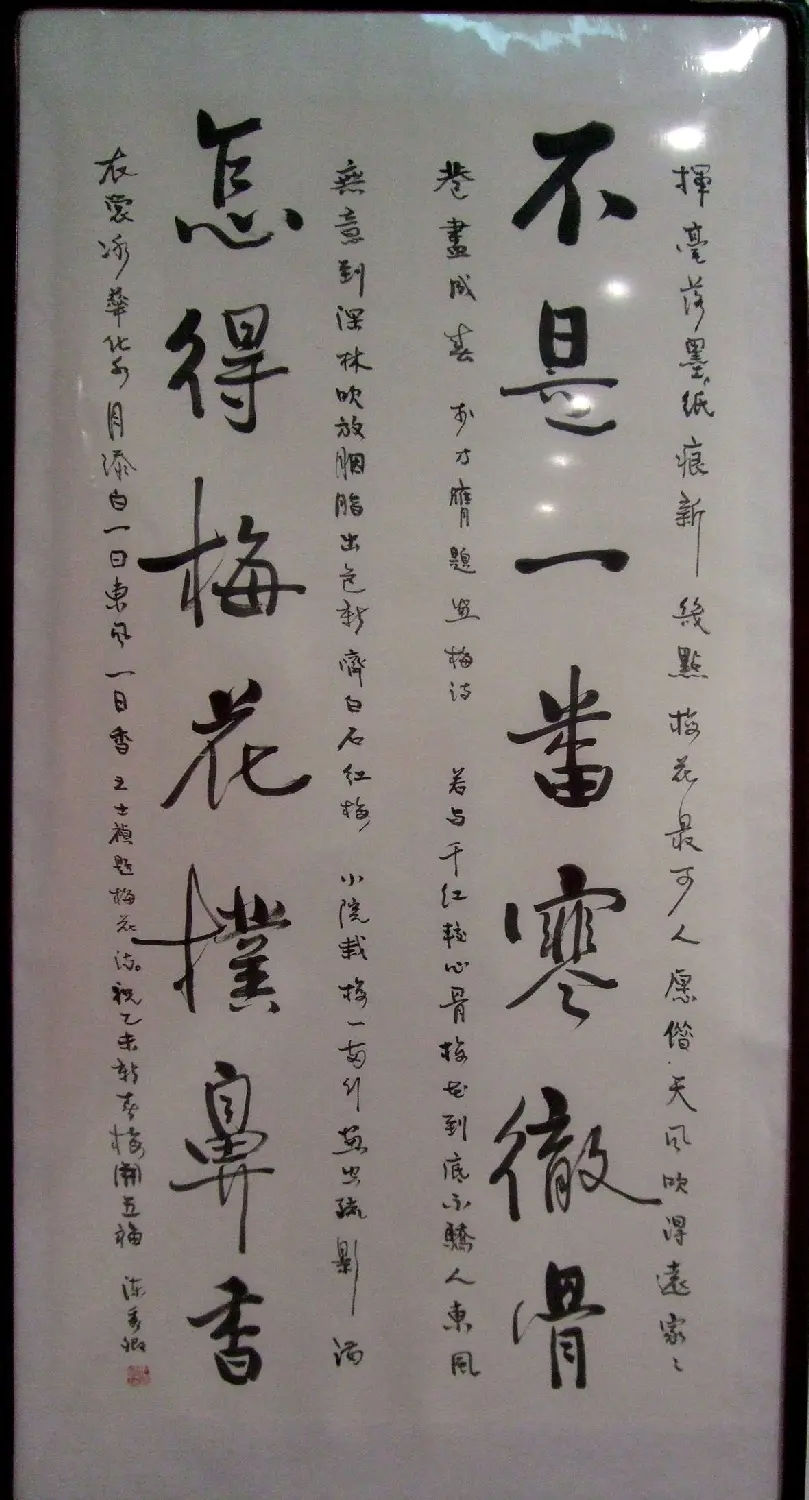 揮毫落墨紙痕新幾點梅花最可人愿借天風吹得遠家々
不是一番寒徹骨
巷盡成春 李方膺題画梅诗 若与千红較心骨梅花到底不驕人東風
無意到深林吹放胭脂出色新齊白石红梅 小院栽梅一兩行画出疏影滿
怎得梅花撲鼻香
衣裳冰華化水月添白一日東風一日香王士禎題梅花诗祝乙未新春梅開五福 陈秀卿